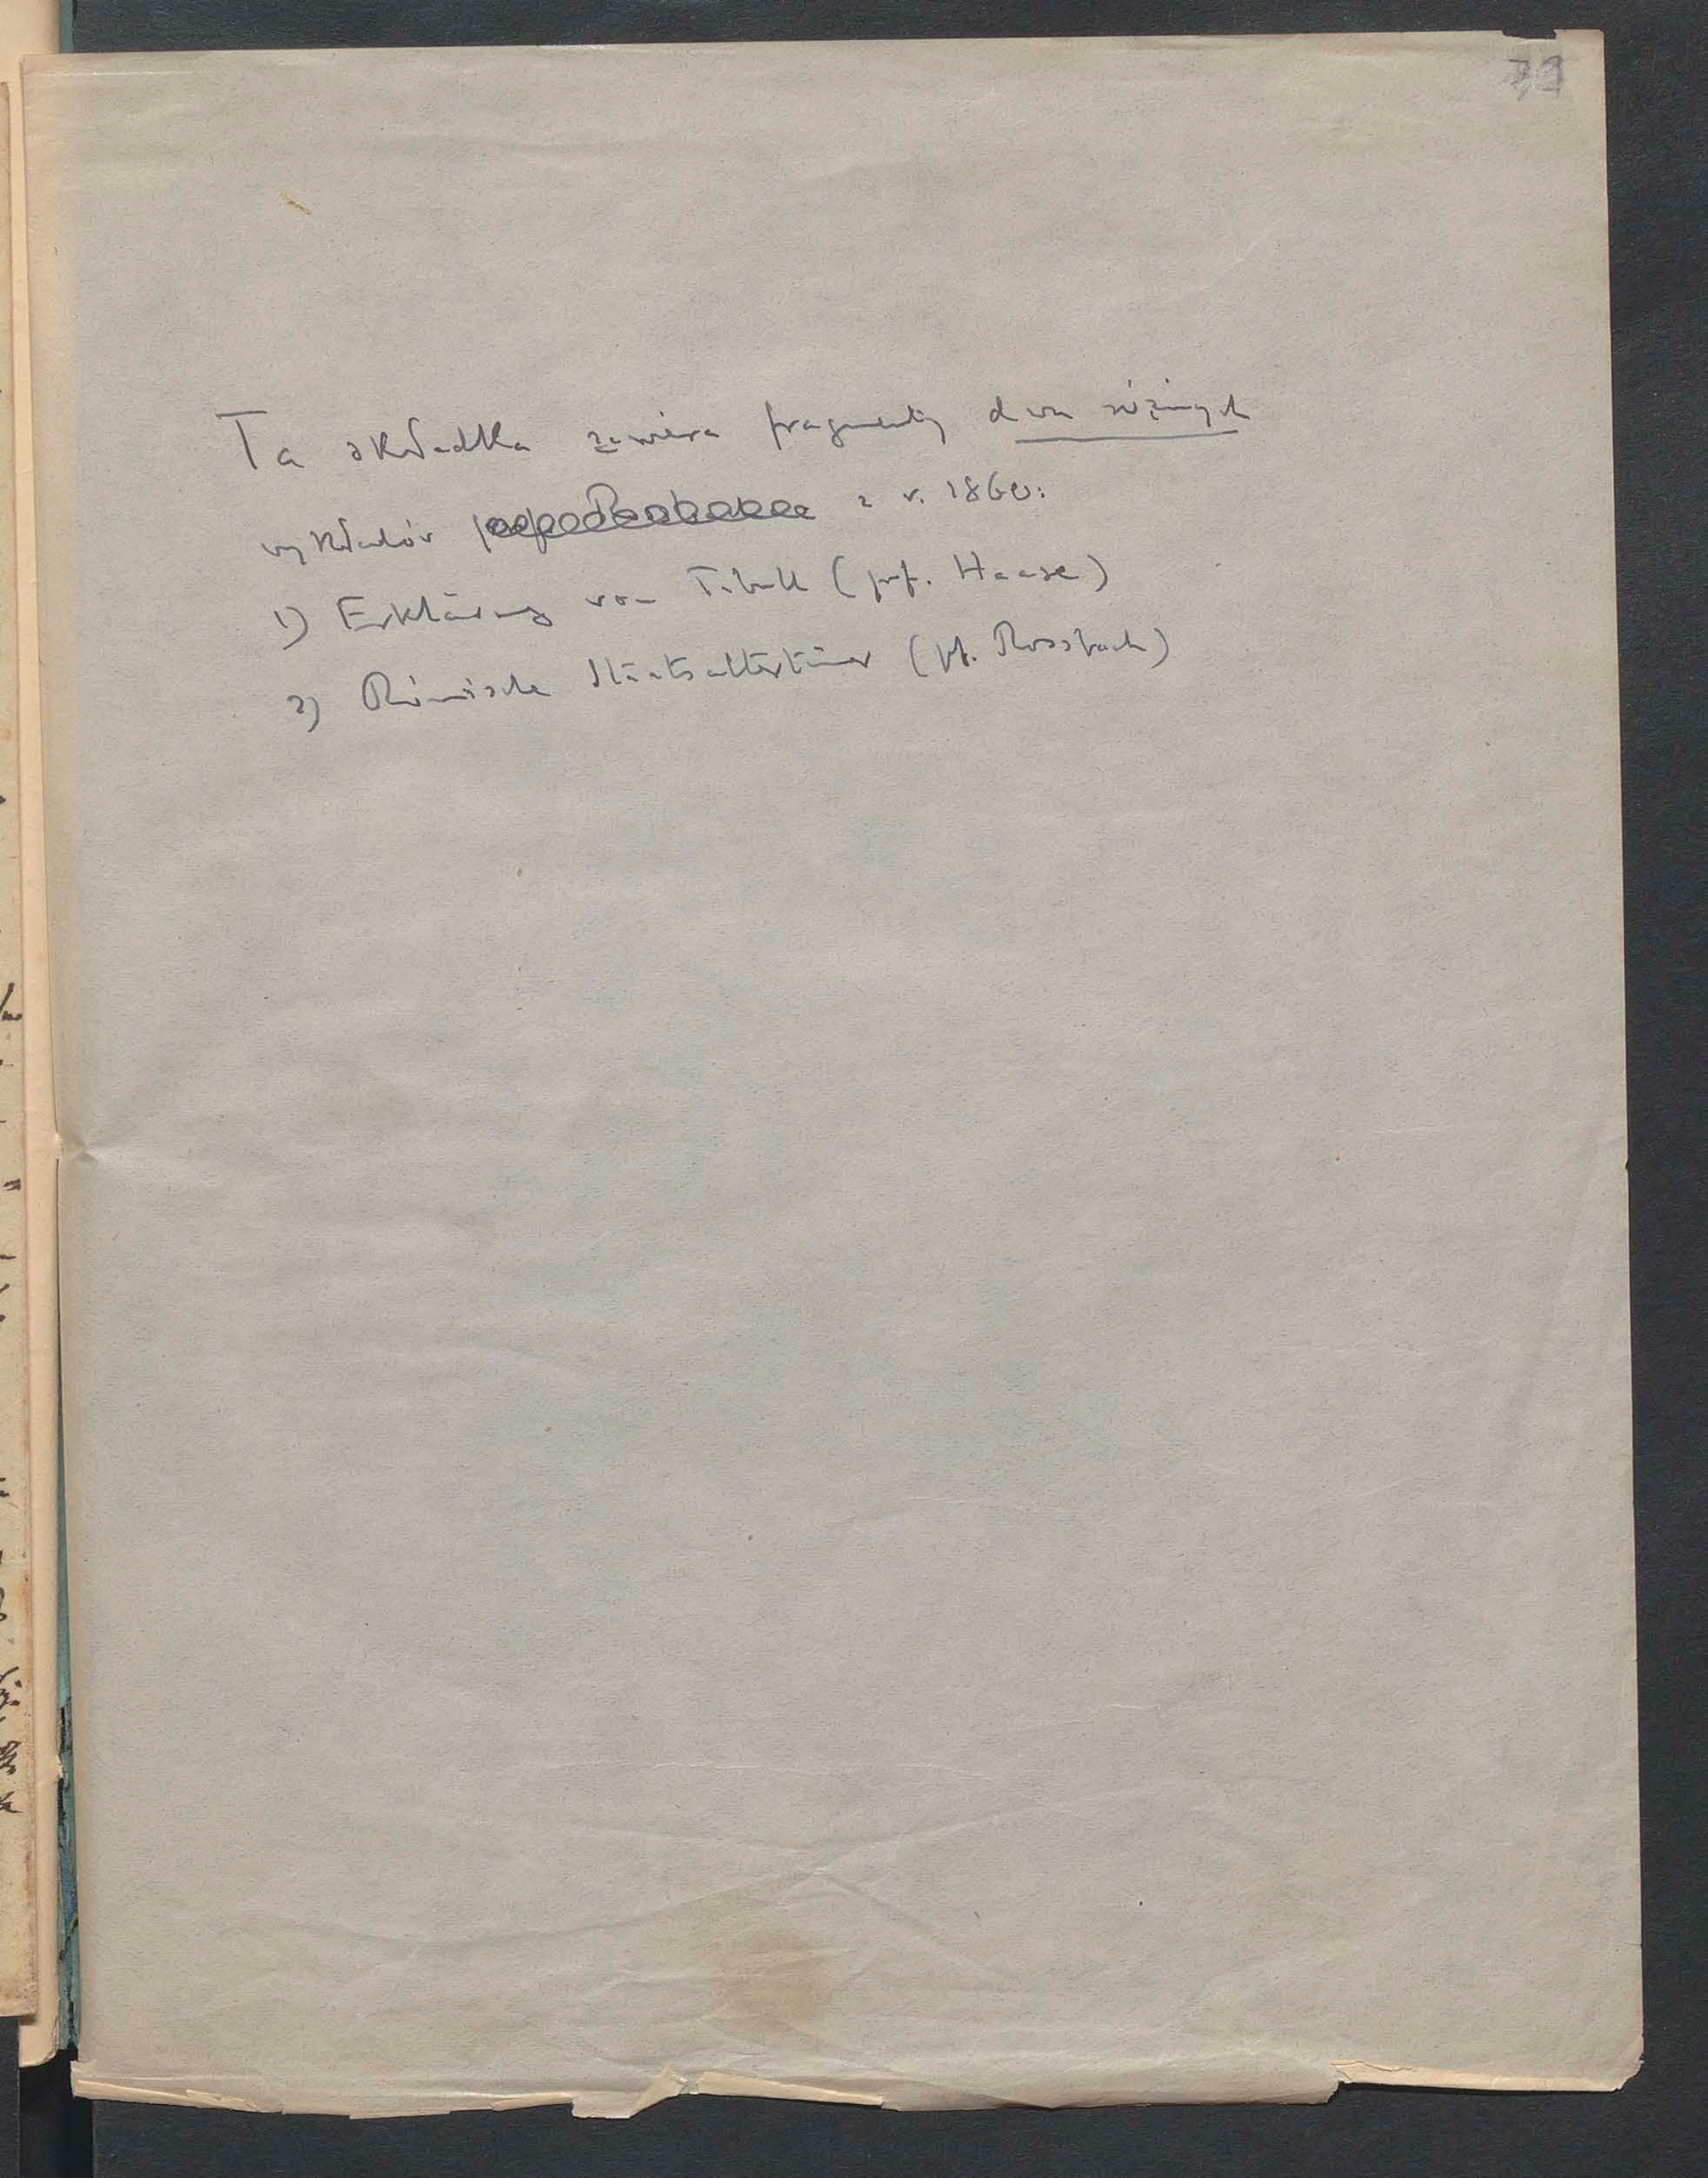 Ta składka zawiera fragmenty dwu różnych
wykładów z r. 1860:
1) Erklärung von Tibull (prof. Haase)
2) Römische Staatsaltertümer (pf. Rossbach)